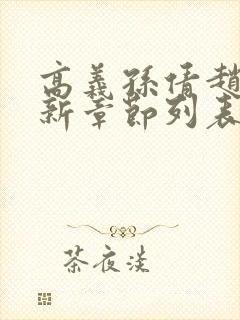 高義孫倩趙
新章節列表
茶夜淡